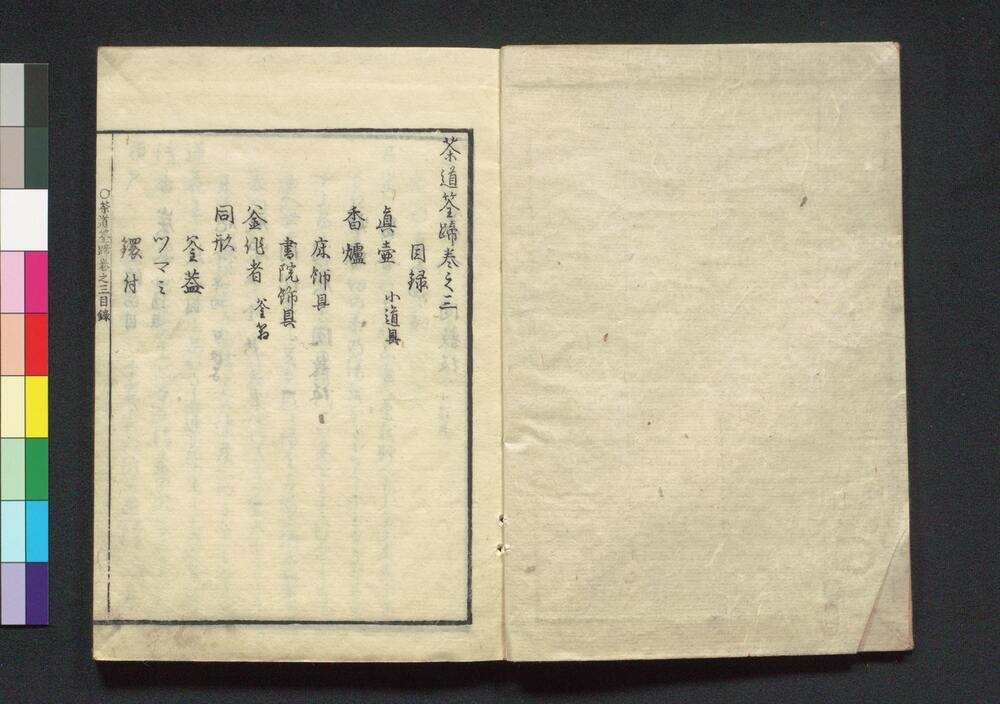 茶道筌蹄巻之三
目録
真壷 小道具
香爐
床飾具
書院飾具
釜作者 釜名
同形
釜蓋
ツマミ
鐶付
○茶道筌蹄巻之三目録